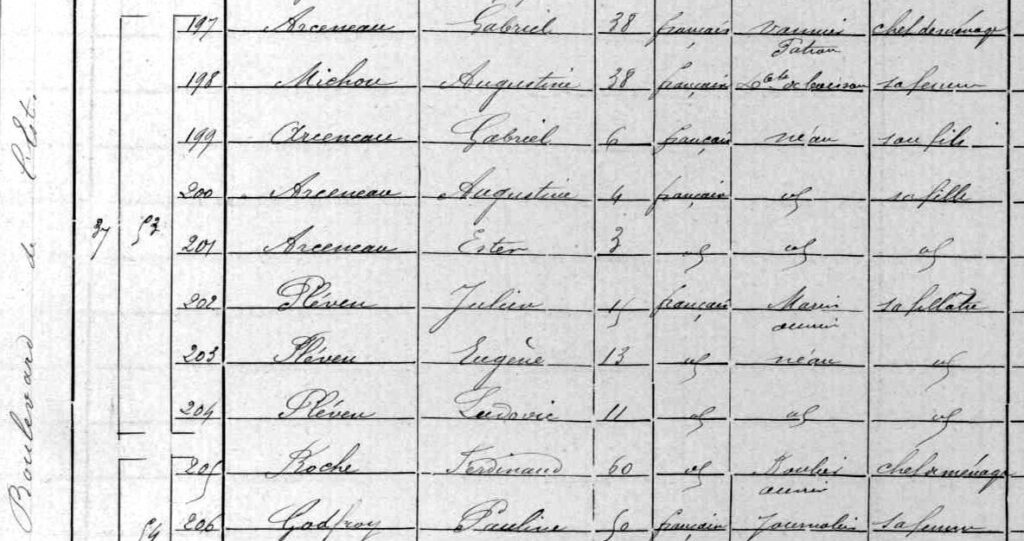 Boulevard de l'Est.
197 Arceneau Gabriel 38 français vannier chef de ménage
Patron
198 Michou Augustine 38 français sa femme
199 Arceneau Gabriel 6 français néan son fils
200 Arceneau Augustine 4 français id sa fille
37 53
201 Arceneau Ester 3 id id id
202 Pléven Julien 15 français Marin
ouvrier
203 Pléven Eugène 13 id néan id
204 Pléven Ludovic 11 id id id
205 Roche Ferdinand 60 id chef de ménage
ouvrier
54 206 Godfroy Pauline 50 français Journalier sa femme